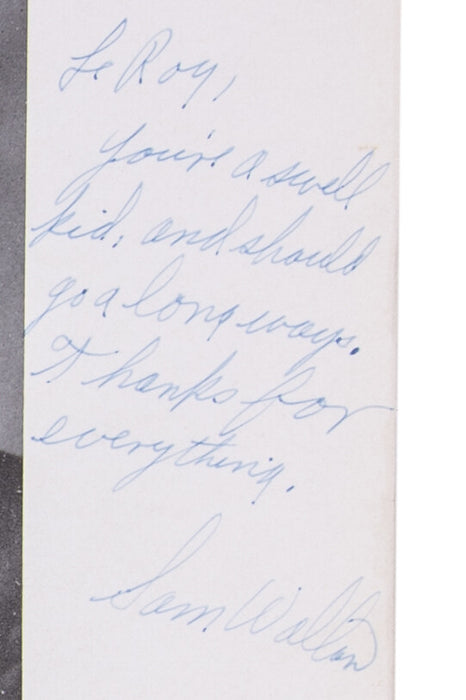 Le Roy,
you're a swell
kid, and should
go a long ways.
Thanks for
everything.
Sam Walton